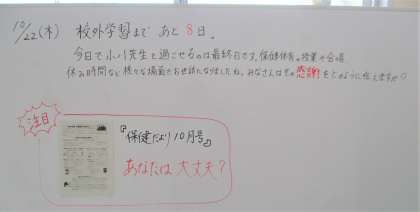 10/22(木) 校外学習まで あと 8日。
今日で小川先生と過ごせるのは最終日です。保健体育の授業や合唱、
休み時間など様々な場面でお世話になりましたね。みなさんはその感謝をどのように伝えますか?
注目
『保健だより10月号』
あなたは大丈夫?